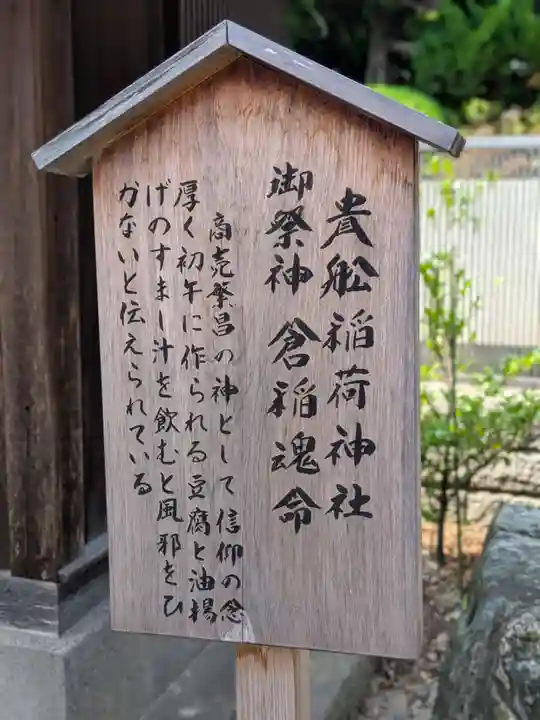 貴舩稲荷神社
御祭神 倉稲魂命
商売繁昌の神として信仰の念
厚く初午に作られる豆腐と油揚
げのすまし汁を飲むと風邪をひ
かないと伝えられている